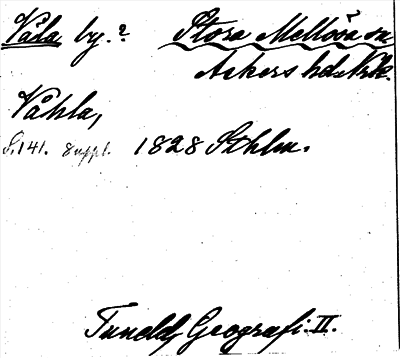 Våla by.? Stora Mellösa sn
Askers hd. Nrke.
Våhla,
S. 141. Suppl. 1828 Sthlm.
Tuneld, Geografi. II.